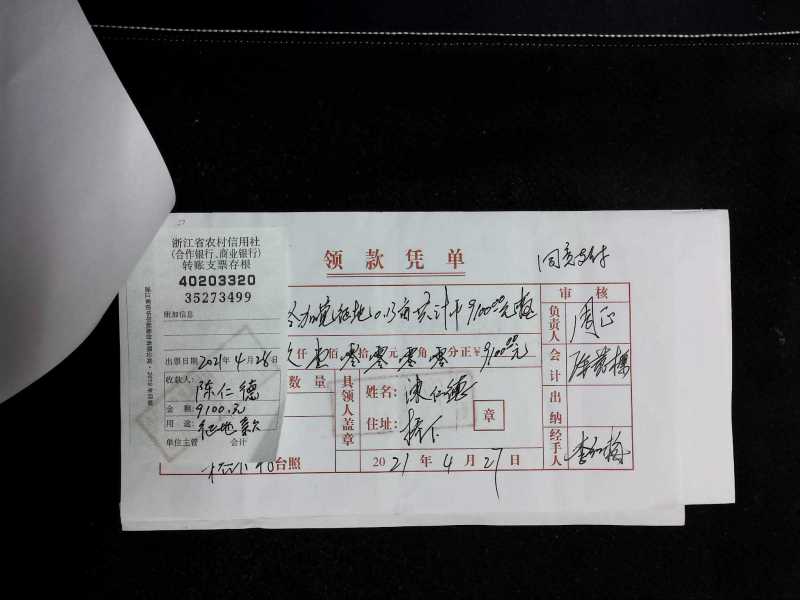 浙江省农村信用社
(合作银行、商业银行)
转账支票存根
40203320
35273499
附加信息
出票日期 2021年4月26日
收款人:
陈仁德
金额: 9100.元
用途: 征地款
单位主管 会计
领款凭单
同意支付
征地0.13亩 共计 9100.00元
仟 壹 佰 零 拾 零 元 零 角 零 分正¥ 9100.00元
数量
台照
具领人盖章
姓名: 陈仁德
住址:
章
2021年4月27日
审核
负责人
周正
会计
出纳
经手人